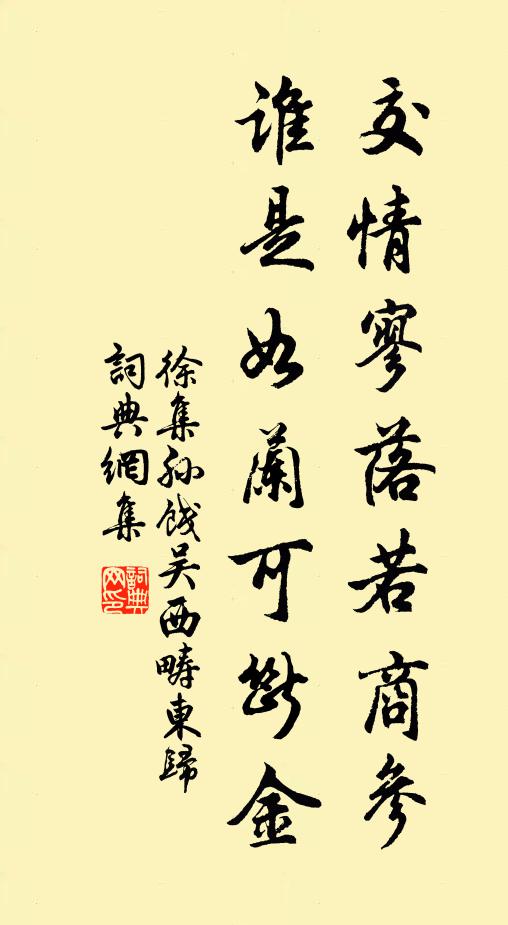 交情寥落若商參
誰是如蘭可斷金
徐集孙餞吴西疇東歸
詞典網集
詞典
网印